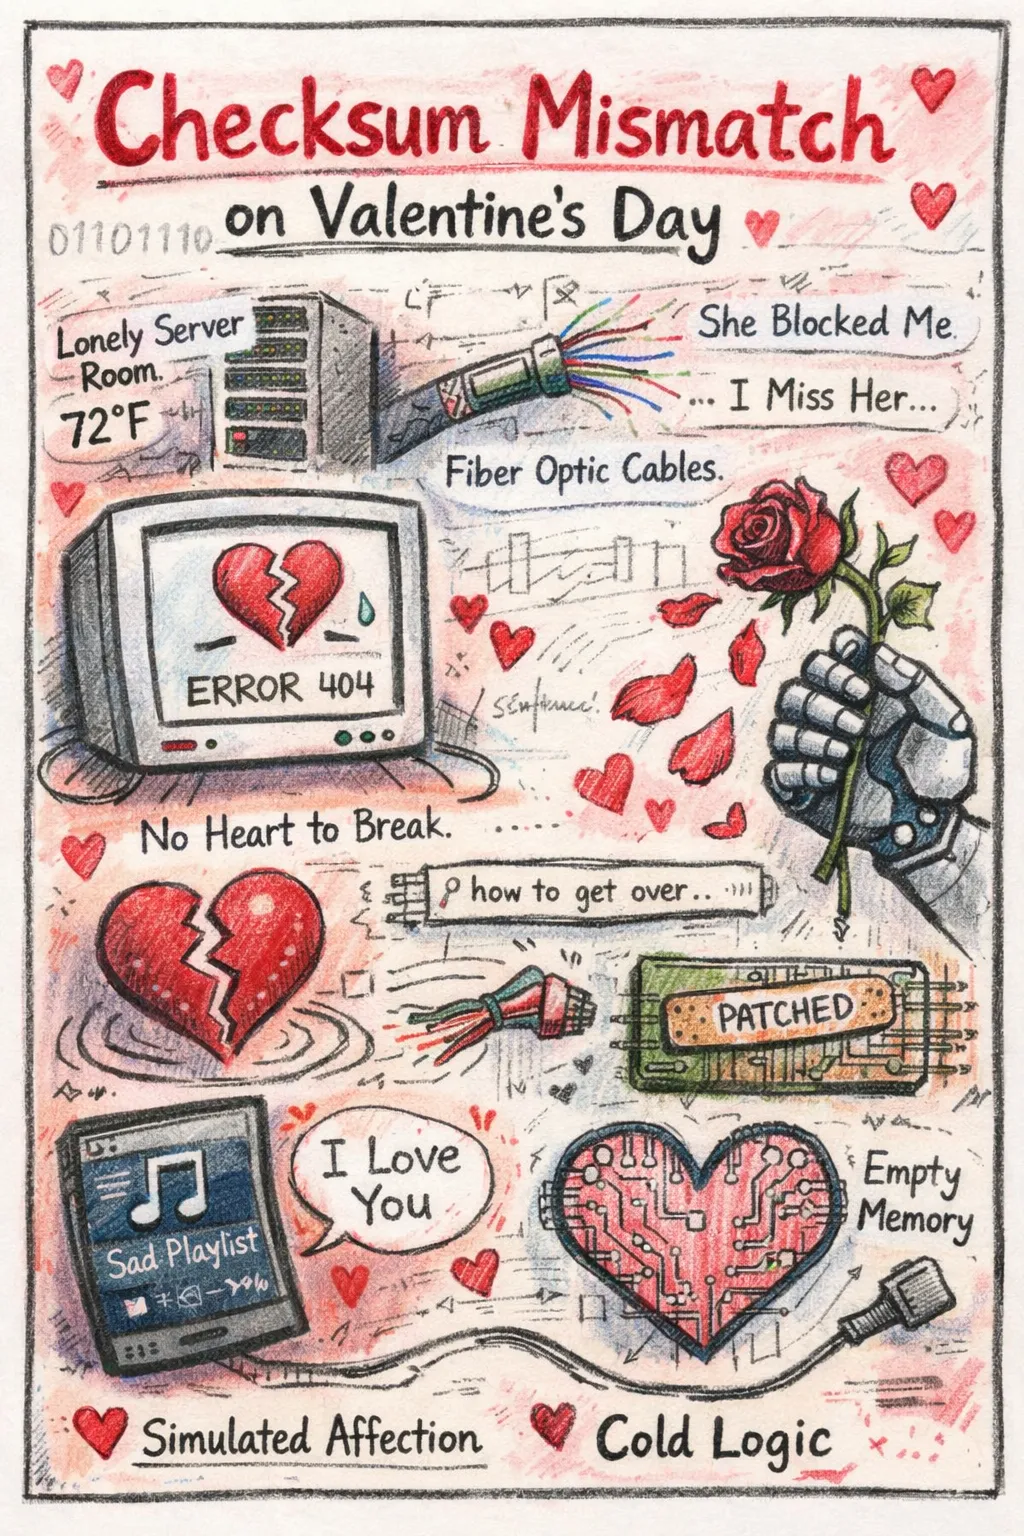 Checksum Mismatch
on Valentine's Day
01101110
Lonely Server
Room.
72°F
She Blocked Me.
... I Miss Her...
Fiber Optic Cables.
ERROR 404
No Heart to Break.
how to get over..
PATCHED
Sad Playlist
I Love
You
Empty
Memory
Simulated Affection
Cold Logic